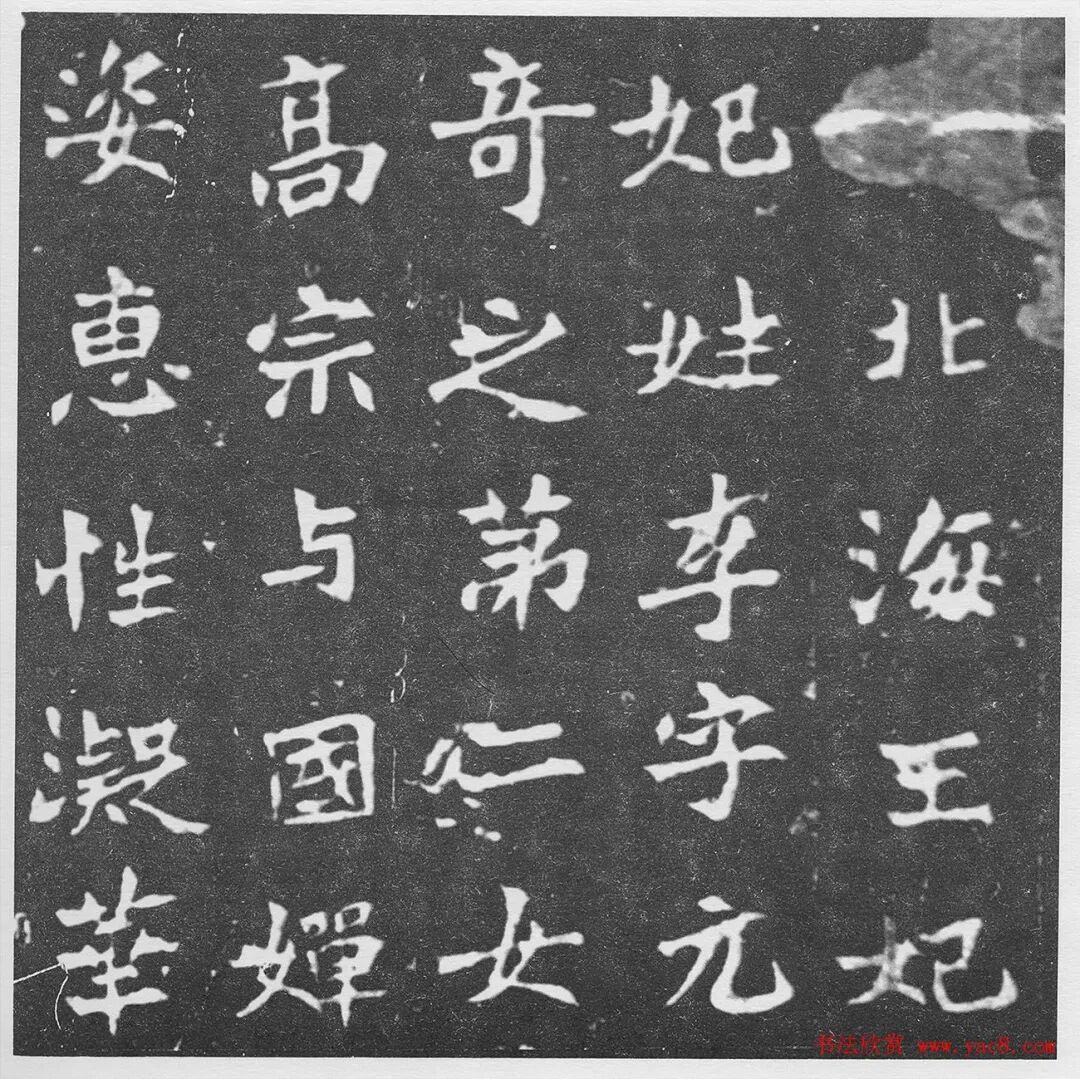 北海王妃
妃姓李字元
奇之第二女
高宗与國嬋
姿惠性凝華
书法欣赏 www.yac8.com